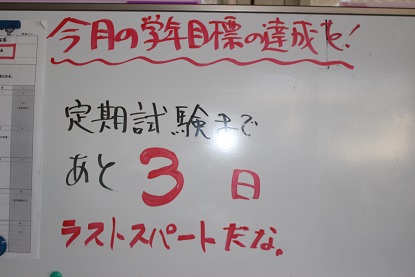 今月の学年目標の達成を!
定期試験まで
あと 3 日
ラストスパートだな。